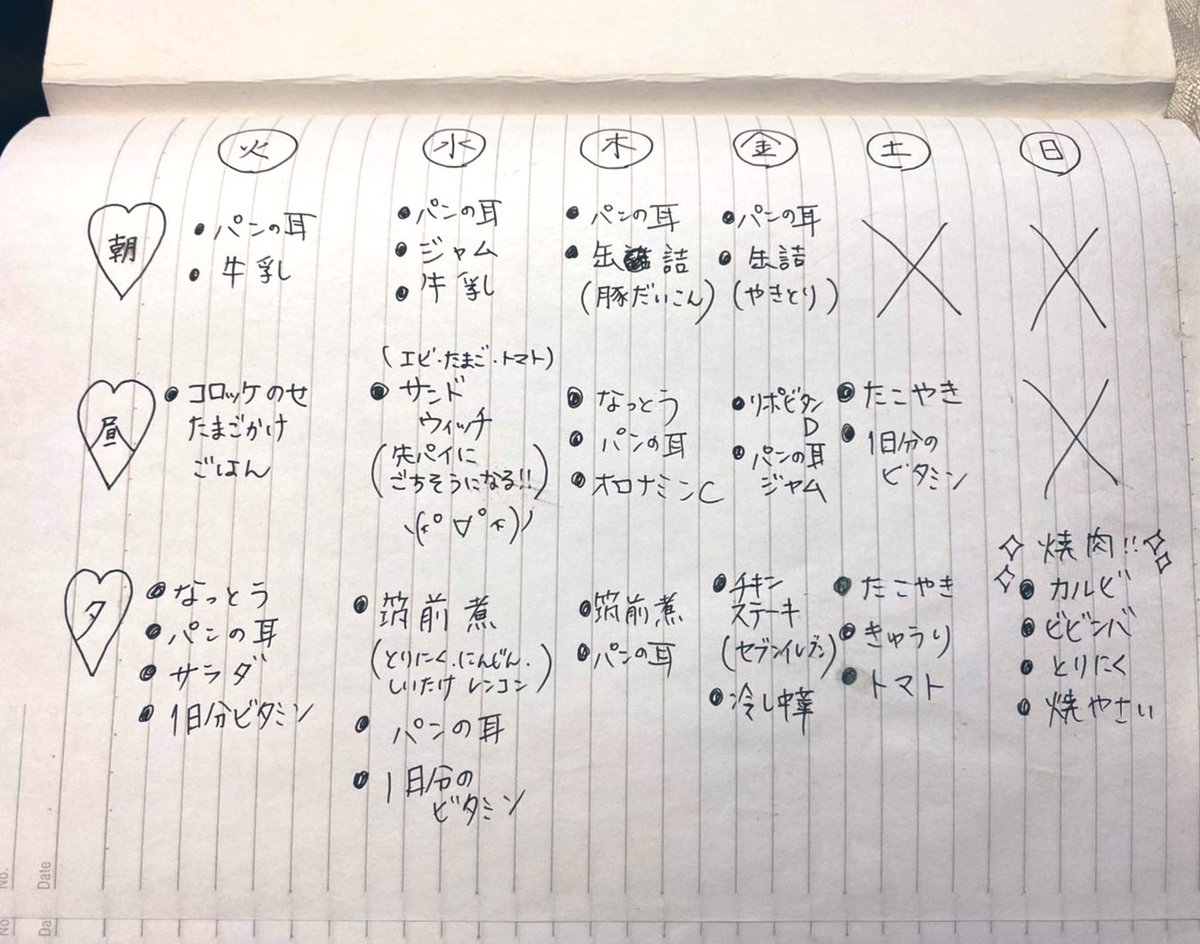 火 水 木 金 土 日
朝
・パンの耳
・牛乳
・パンの耳
・ジャム
・牛乳
・パンの耳
・缶詰
(豚だいこん)
・パンの耳
・缶詰
(やきとり)
昼
・コロッケのせ
たまごかけ
ごはん
(エビ・たまご・トマト)
・サンド
ウィッチ
(先パイに
ごちそうになる!!)
・なっとう
・パンの耳
・オロナミンC
・リポビタン
D
・パンの耳
ジャム
・たこやき
・1日分の
ビタミン
夕
・なっとう
・パンの耳
・サラダ
・1日分ビタミン
・筑前煮
(とりにく・にんじん・
しいたけ レンコン)
・パンの耳
・1日分の
ビタミン
・筑前煮
・パンの耳
・チキン
ステーキ
(セブンイレブン)
・冷し中華
・たこやき
・きゅうり
・トマト
焼肉!!
・カルビ
・ビビンバ
・とりにく
・焼やさい
No.
Date